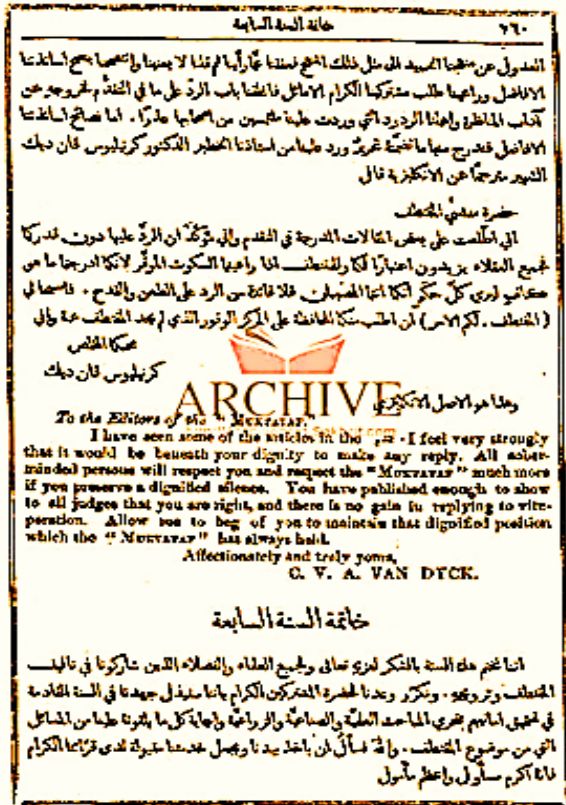 ٧٦٠ خاتمة السنة السابعة
العدول عن منهجنا الحميد الى مثل ذلك النهج فعلنا
الافاضل وراعينا طلب مشتركينا الكرام الاماثل فاغلقنا باب الردّ على ما في المقدّم لخروجه عن
آداب المناظرة واهملنا الردود التي وردت علينا ملتمسين من اصحابها عذرًا ٠ اما نصائح اساتذتنا
الافاضل فندرج منها ما تضمنهُ تحرير ورد علينا من استاذنا الخطير الدكتور كرنيليوس ڤان ديك
الشهير مترجمًا عن الانكليزية قال
حضرة منشئي المقتطف
اني اطّلعت على بعض المقالات المدرجة في المقدم واني مؤكّد ان الردّ عليها دون قدركما
فجميع العقلاء يزيدون اعتبارًا لكما وللمقتطف اذا راعيتما السكوت الموقّر لانكما ادرجتما ما هو
كافٍ ليرى كلّ حكم انكما انتما المصيبان فلا فائدة من الرد على الطعن والقدح ٠ فاسمحا لي
ان اطلب منكما المحافظة على المركز الوقور الذي لم يحد المقتطف عنه واني
محبكما المخلص
كرنيليوس ڤان ديك
ARCHIVE
وهذا هو الاصل الانكليزي
To the Editors of the "MUKTATAF."
I have seen some of the articles in the - I feel very strongly
that it would be beneath your dignity to make any reply. All sober-
minded persons will respect you and respect the "MUKTATAF" much more
if you preserve a dignified silence. You have published enough to show
to all judges that you are right, and there is no gain in replying to vitu-
peration. Allow me to beg of you to maintain that dignified position
which the "MUKTATAF" has always held.
Affectionately and truly yours,
C. V. A. VAN DYCK.
خاتمة السنة السابعة
اننا نختم هذه السنة بالشكر لعزته تعالى ولجميع العلماء والفضلاء الذين شاركونا في تاليف
المقتطف وترويجه ٠ ونكرّر وعدنا لحضرة المشتركين الكرام باننا سنبذل جهدنا في السنة القادمة
في تحقيق امانيهم بتحري المباحث العلميّة والصناعيّة والزراعيّة واجابة كل ما يلقونه علينا من المسائل
التي من موضوع المقتطف ٠ والله نسأل ان ياخذ بيدنا ويجعل خدمتنا مقبولة لدى قرّائنا الكرام
فانه اكرم مسأول واعظم مأمول